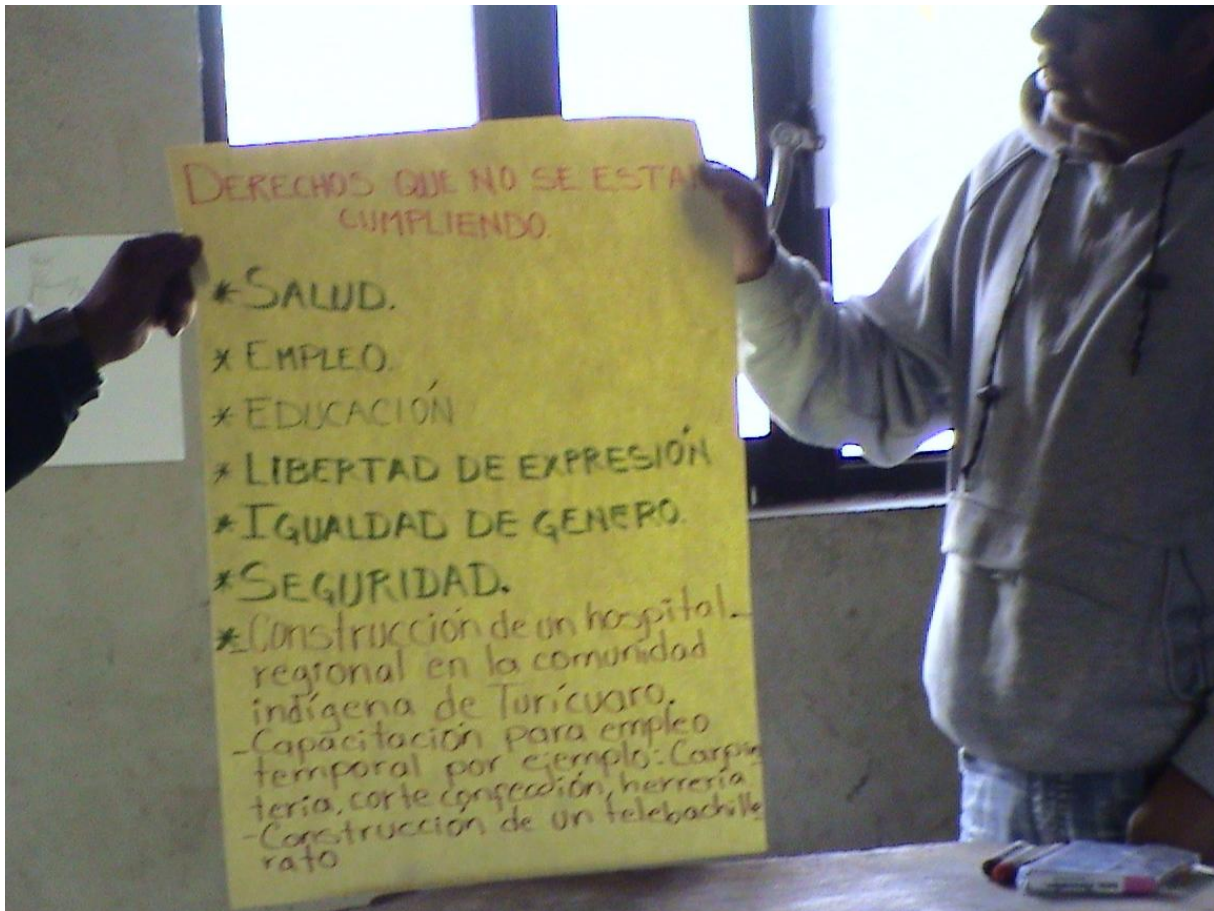 DERECHOS QUE NO SE ESTA
CUMPLIENDO.
* SALUD.
* EMPLEO.
* EDUCACIÓN
* LIBERTAD DE EXPRESIÓN
* IGUALDAD DE GENERO.
* SEGURIDAD.
* Construcción de un hospital
regional en la comunidad
indígena de Turícuaro.
- Capacitación para empleo
temporal por ejemplo: Carpin
tería, corte confección, herrería
- Construcción de un telebachille
rato